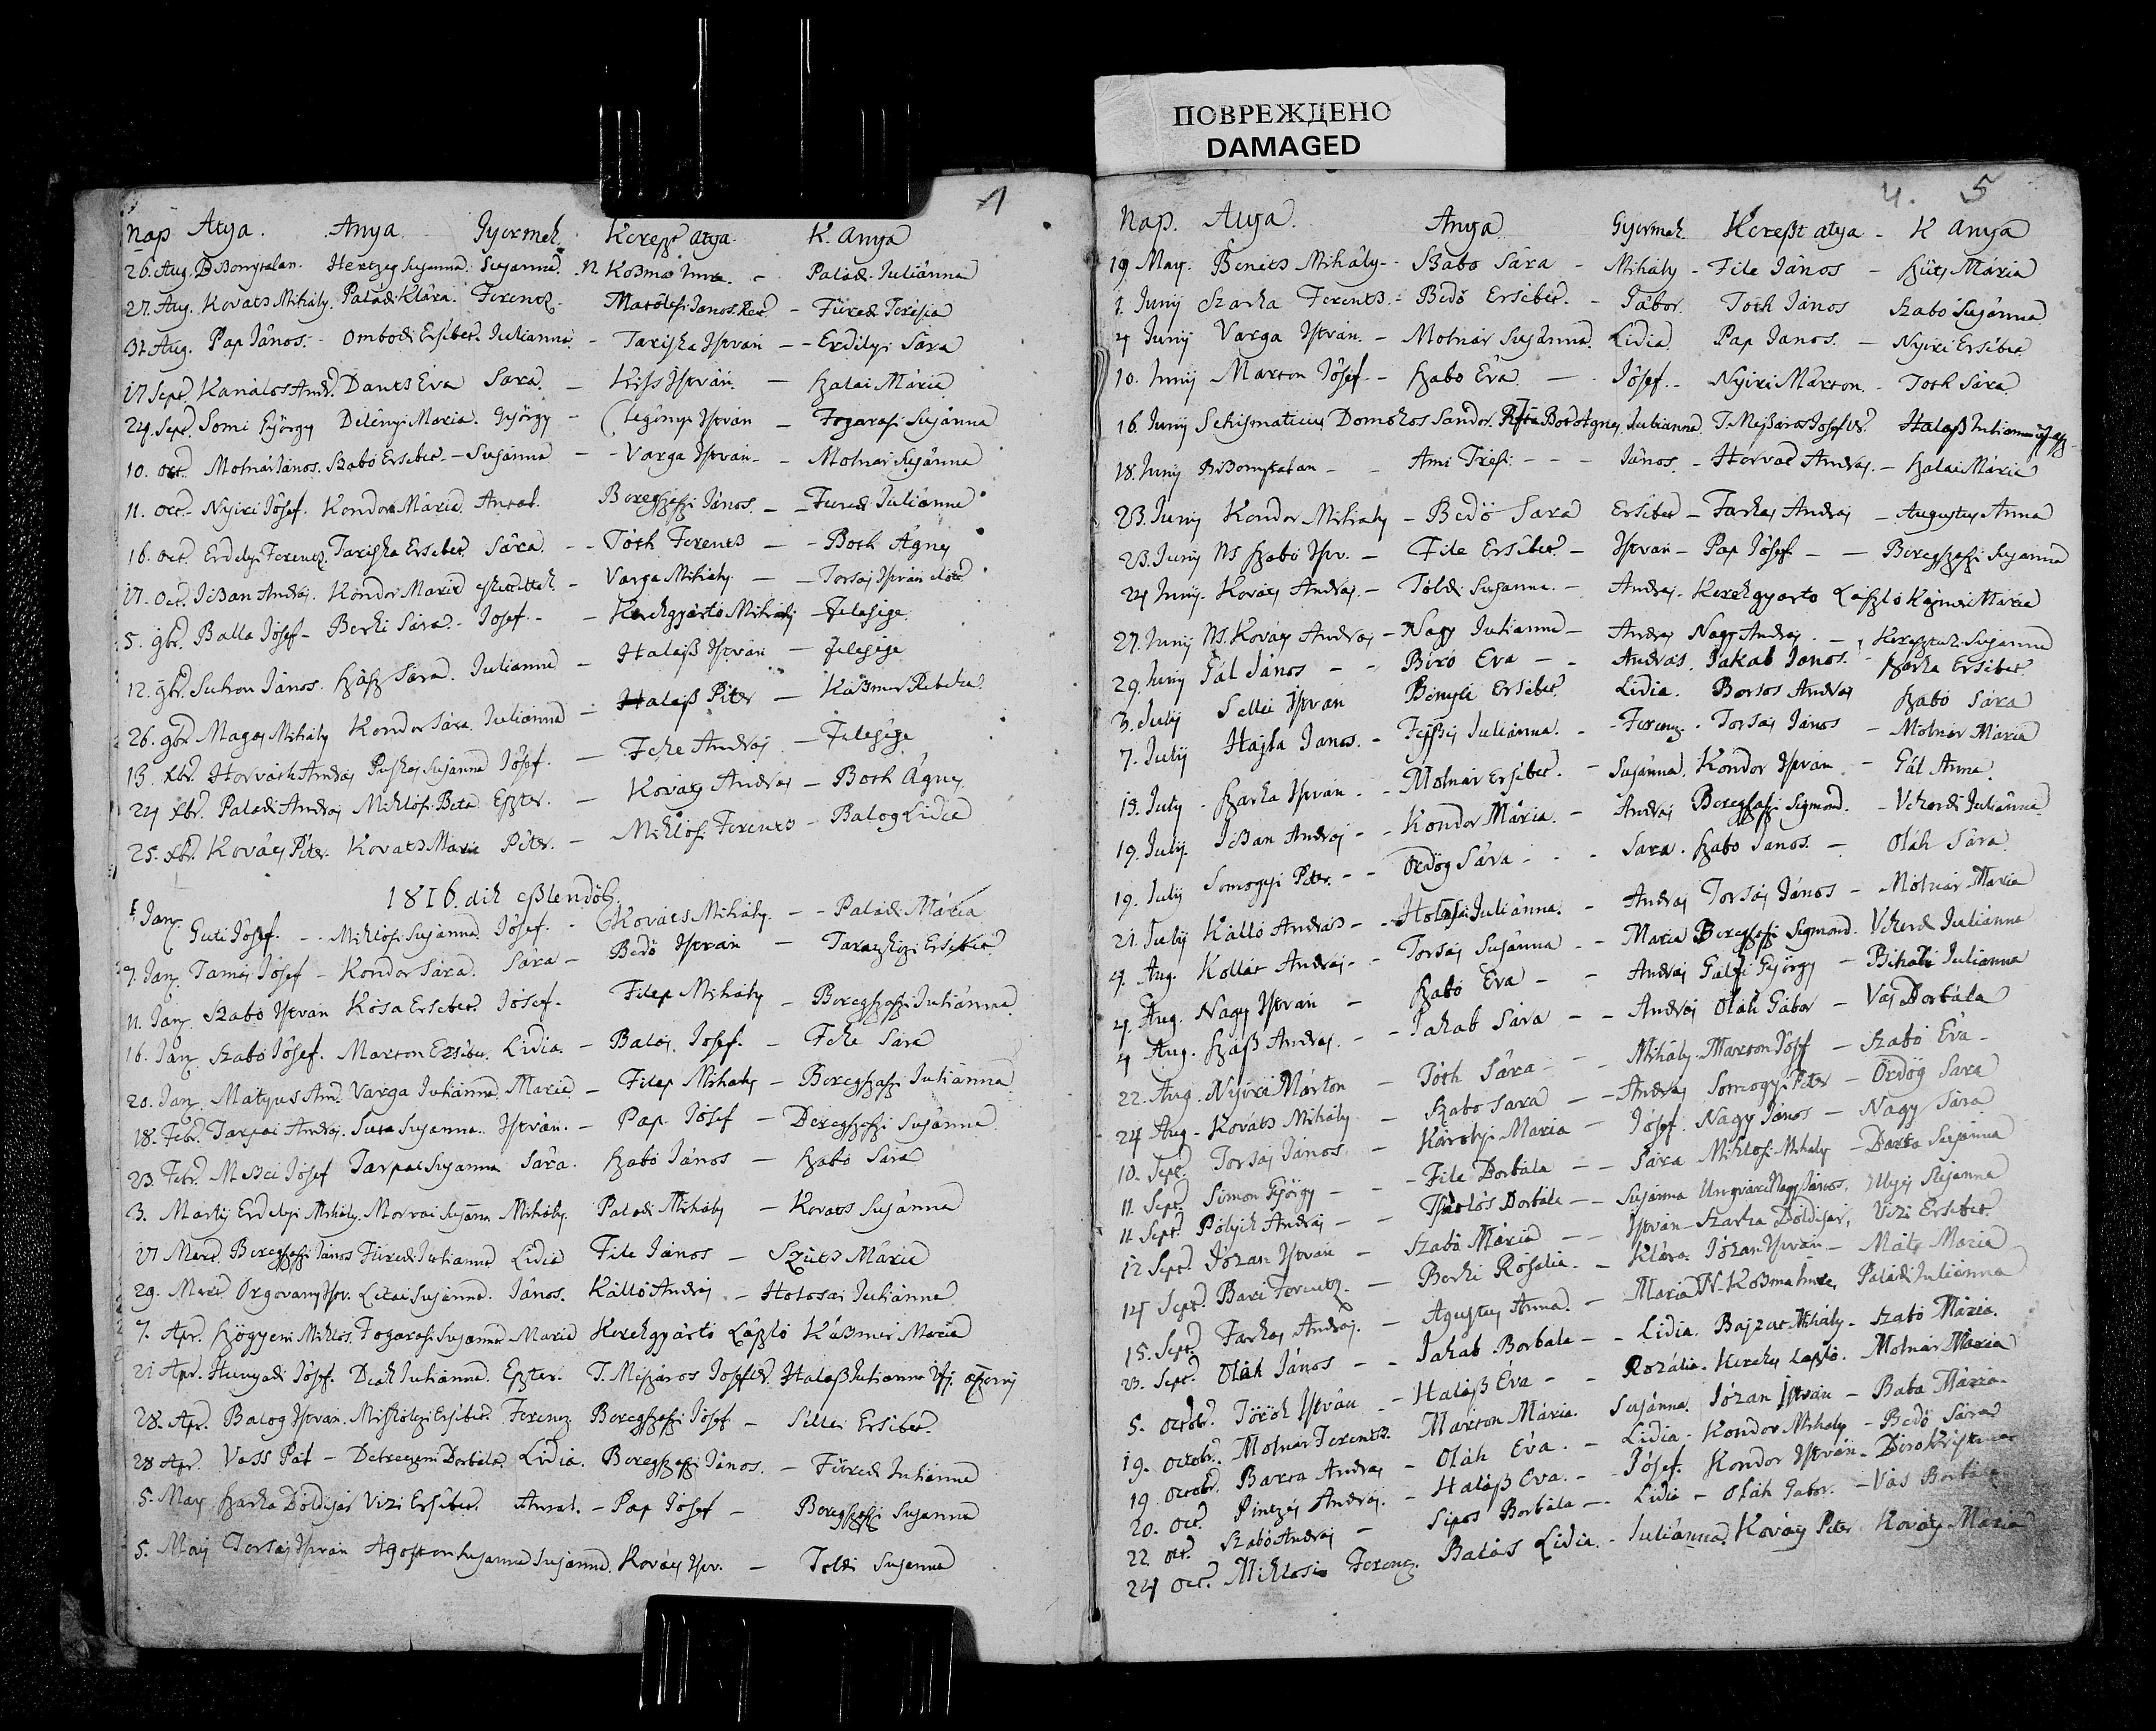 ПОВРЕЖДЕНО
DAMAGED
1
Nap Atya. Anya. Gyermek. Kereszt Atya. K. Anya
26. Aug. Bizonytalan. Hertzeg Susanna. Susanna. N. Kozma Imre - Paládi Juliánna
27. Aug. Kováts Mihály. Paládi Klára. Ferentz. Matólcsi János. - Füredi Terésia
31. Aug. Pap János. - Ombodi Ersébet. Julianna. - Tariska Istvan - Erdélyi Sára
17 Sept. Kanálos And. Dants Éva Sara. - Kiss István. - Szalai Mária
24. Sept. Somi György Delényi Maria. György - Legényi István - Fogarasi Susánna
10. Oct. Molnár János. Szabó Ersébet. - Susánna - Varga Istvan - Molnár Susánna
11. Oct. - Nyiri Jósef. Kondor Mária Antal. Beregszászi János. - Füredi Juliánna
16. Oct. Erdélyi Ferentz. Tariska Ersébet. Sára. - Tóth Ferents - Both Ágnes
17. Oct. Andrá. Kóndor Maria - Varga Mihály - Torsás István
5. 9br. Balla Jósef - Berki Sára. - Josef. - Kerekgyártó Mihály - felesége
12. 9br. János. Szász Sára. Julianna - Halász István - felesége
26. 9br Magos Mihály Kondor Sára. Juliánna - Halász Péter - Kázmér Rebeka
13. Xbr. Horváth András Puskás Susánna Jósef. - Feke András - Felesége
24 Xbr. Paládi András Miklósi Beta Eszter. - Kováts András - Both Ágnes
25. Xbr. Kováts Péter. Kováts Maria Péter. - Miklósi Ferents - Balog Lidia
1816. dik esztendöb.
1 Jan. Guti Jósef. - Miklósi Susánna Jósef. - Kováts Mihály. - Paládi Mária
7. Jan. Tamás Jósef - Kondor Sára. Sara - Bedö István - Ersébet
11. Jan. Szabó István Kósa Ersébet Jósef. Filep Mihály - Beregszászi Juliánna
16. Jan. Szabó Jósef. Marton Ersébet. Lidia. - Balás Josef. - Feke Sára
20. Jan. Matyus And. Varga Juliánna Maria - Filep Mihály - Beregszászi Juliánna
18. Febr. Tarpai András. Suta Susanna. István. - Pap Jósef - Beregszászi Susánna
23. Febr. Jósef Tarpai Susanna Sára. Szabó János - Szabó Sára
3. Martij Erdélyi Mihály. Morvai Susánna Mihály. Paládi Mihály - Kovats Susánna
17 Mart. Beregszászi János Füredi Julianna Lidia File János - Szüts Mária
29. Mart. Orgovany Istv. Susánna. János. Kálló András - Holosai Juliánna
7. Apr. Szögyeni Miklós. Fogarasi Susanna Maria Kerekgyártó László Kázmér Maria
21 Apr. Hunyadi Jósef. Deák Julianna. Eszter. T. Mészáros Josef Halász Julianna Ifj. aszszony
28. Apr. Balog István. Miskóltzi Ersébet. Ferentz Beregszászi Jósef - Sellei Ersébet
28 Apr. Vass Pál - Debretzeni Borbála. Lidia. Beregszászi János. - Füredi Juliánna
5. May Szarka Boldisár Vizi Ersébet. Antal. - Pap Jósef - Beregszászi Susanna
5. Maij Torsás István Agoston Susanna Susánna. Kováts Istv. - Toldi Susanna
4. 5
Nap. Atya. Anya Gyermek. Kereszt atya - K Anya
19 May. Benits Mihály - Szabó Sára - Mihály - File János - Szüts Mária
1. Junij Szarka Ferents. - Bedö Ersébet. - Gábor. Tóth János Szabó Susánna
4 Junij Varga István. - Molnár Susánna. Lidia Pap Janos. - Nyiri Ersébet
10. Junij Marton Jósef - Szabo Éva. - Jósef. - Nyiri Márton. - Toth Sára
16. Junij Schismaticus Domokos Sandor. Ref. Both Ágnes. Julianna. T. Mészáros Josef Halász Julianna
18. Junij Bizonytalan - Ami Trési - - János. - Horvát András. - Szalai Mária
23. Junij Kondor Mihály - Bedö Sara Ersébet - Farkas András - Augustus Anna
23. Junij Ns Szabó Istv. - File Ersébet - István - Pap Jósef - Beregszászi Susanna
24 Junij. Kováts András - Tóldi Susanna. - András - Kerekgyarto László Kázméri Mária
27. Junij Ns. Kováts András - Nagy Julianna - András Nagy András. - Kereszturi Susanna
29. Junij Gál János - Biró Eva - András. Jakab Janos. - Szarka Ersébet
3. Julij Sellei István Benyei Ersébet Lidia. Borsos András Szabó Sára
7. Julij Hajla Janos. - Juliánna. - Ferentz. Torsás János - Molnár Mária
13. July - Szarka István. - Molnár Ersébet. - Susánna. Kóndor István - Gál Anna.
19. July. András - Kondor Mária. - András Beregszászi Sigmond. - Vekerdi Juliánna
19. July Somogyi Péter. - Ördög Sára - Sara. Szabo Janos. - Oláh Sára
21. July Kálló András - Juliánna. - András Torsás János - Molnár Maria
4. Aug. Kollár András - Torsás Susánna - Maria Beregszászi Sigmond. Vekerdi Julianna
4. Aug. Nagy István - Szabó Eva - András Gálfi György - Bihari Julianna
4 Aug. Szász András. - Jakab Sára - András Oláh Gábor - Vas Borbála
22. Aug. Nyiri Márton - Tóth Sára - Mihály. Marton Jósef - Szabó Éva -
24 Aug - Kováts Mihály - Szabo Sara - András Somogyi Péter - Ördög Sara
10. Sept. Torsás János - Károlyi Maria - Jósef. Nagy János - Nagy Sára
11. Sept. Simon György - File Borbála - Sára Miklósi Mihály - Barta Susánna
11 Sept. András - Borbála - Susánna Ungvári Nagy János.
12 Sept. Józan István - Szabó Mária - István - Szarka Boldisár, Vizi Ersébet
14 Sept. Bari Ferentz. - Berki Rósália. - Klára. Józan István - Máté Maria
15. Sept. Farkas András. - Agustus Anna. - Maria N. Kozma Imre, Paládi Julianna
23. Sept. Oláh János - Jakab Borbála - Lidia. Mihály - Szabó Mária.
5. Octobr. Török István - Halász Éva - Rozália. Kerekes László. Molnár Maria
19. Octobr. Molnár Ferents. Marton Mária. Susánna. Józan István - Baba Mária.
19 Octobr. Barta András - Oláh Éva. - Lidia. Kondor Mihály - Bedö Sára
20. Oct. Pintzés András. - Halász Eva. - Jósef. Kondor István. Biró Kristina
22. Oct. Szabó András - Sipos Borbála - Lidia - Oláh Gabor. - Vas Borbála
24 Oct. Miklosi Ferentz. Balás Lidia. - Juliánna. Kováts Péter Kováts Maria